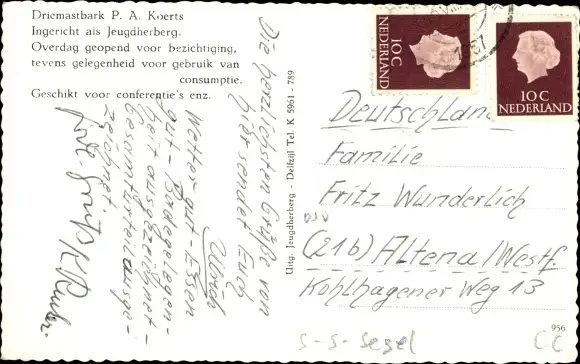 Driemastbark P. A. Koerts
Ingericht als Jeugdherberg.
Overdag geopend voor bezichtiging,
tevens gelegenheid voor gebruik van
consumptie.
Geschikt voor conferentie's enz.
Die herzlichsten Grüße von
hier sendet Euch
Ulrich
Wetter - gut - Essen
gut - Badegelegen-
heit ausgezeichnet -
Gesamturteil ausge-
zeichnet.
Uitg. Jeugdherberg - Delfzijl Tel. K 5961 - 789
10 C
NEDERLAND
1957
10 C
NEDERLAND
Deutschland
Familie
Fritz Wunderlich
(21b) Altena/Westf.
Kohlhagener Weg 13
956
S-S-Segel
CC